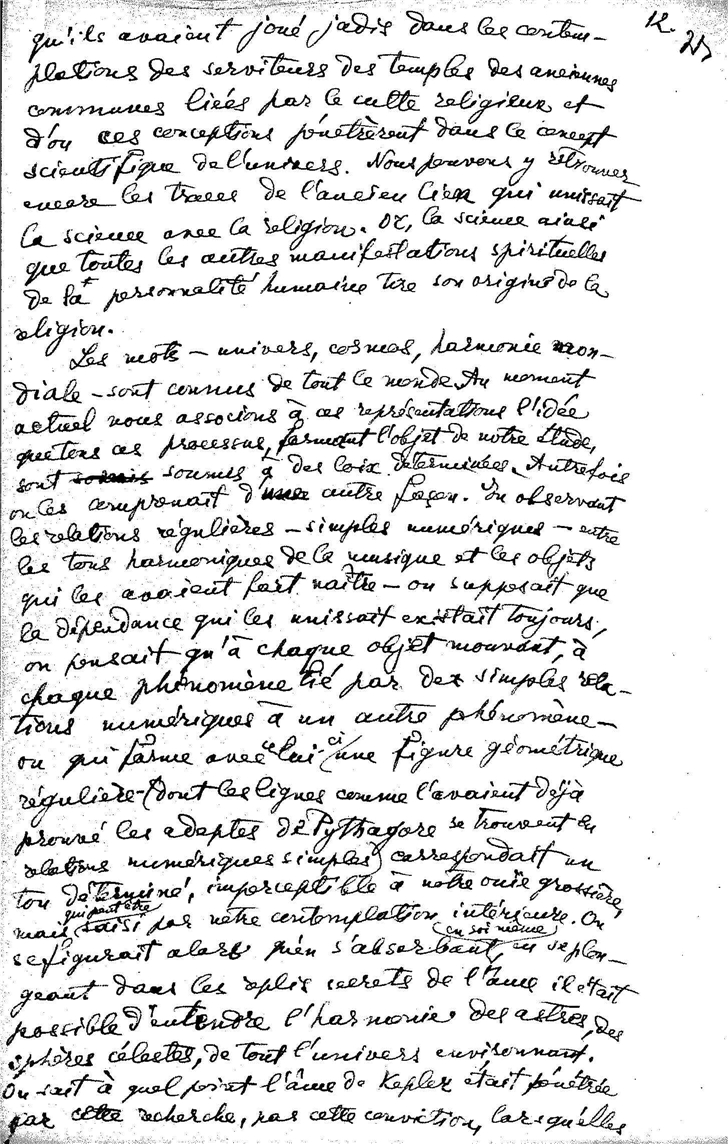 12.
qu'ils avaient joué jadis dans les contem-
plations des serviteurs des temples des anciennes
communes liées par le culte religieux et
d'ou ces conceptions pénétrèrent dans le concept
scientifique de l'univers. Nous pouvons y retrouver
encore les traces de l'ancien lien qui unissait
la science avec la religion. Or, la science ainsi
que toutes les autres manifestations spirituelles
de la personnalité humaine tire son origine de la
religion.
Les mots – univers, cosmos, harmonie mon-
diale – sont connus de tout le monde. Au moment
actuel nous associons à ces représentations l'idée
que tous ces processus, formant l'objet de notre étude,
sont soumis à des loix déterminées. Autrefois
on les comprenait d'une autre façon. En observant
les relations régulières – simples numériques – entre
les tons harmoniques de la musique et les objets
qui les avaient fait naître – on supposait que
la dépendance qui les unissait existait toujours;
on pensait qu'à chaque objet mouvant, à
chaque phénomène lié par des simples rela-
tions numériques à un autre phénomène –
ou qui forme avec celui-ci une figure géométrique
régulière – (dont les lignes comme l'avaient déjà
prouvé les adeptes de Pythagore se trouvent en
relations numériques simples) correspondait un
ton déterminé, imperceptible à notre ouïe grossière,
mais qui peut être saisi par notre contemplation intérieure. On
se figurait alors qu'en s'absorbant en soi même, en se plon-
geant dans les replis secrets de l'âme il était
possible d'entendre l'harmonie des astres, des
sphères célestes, de tout l'univers environnant.
On sait à quel point l'âme de Kepler était pénétrée
par cette recherche, par cette conviction, lorsqu'elles